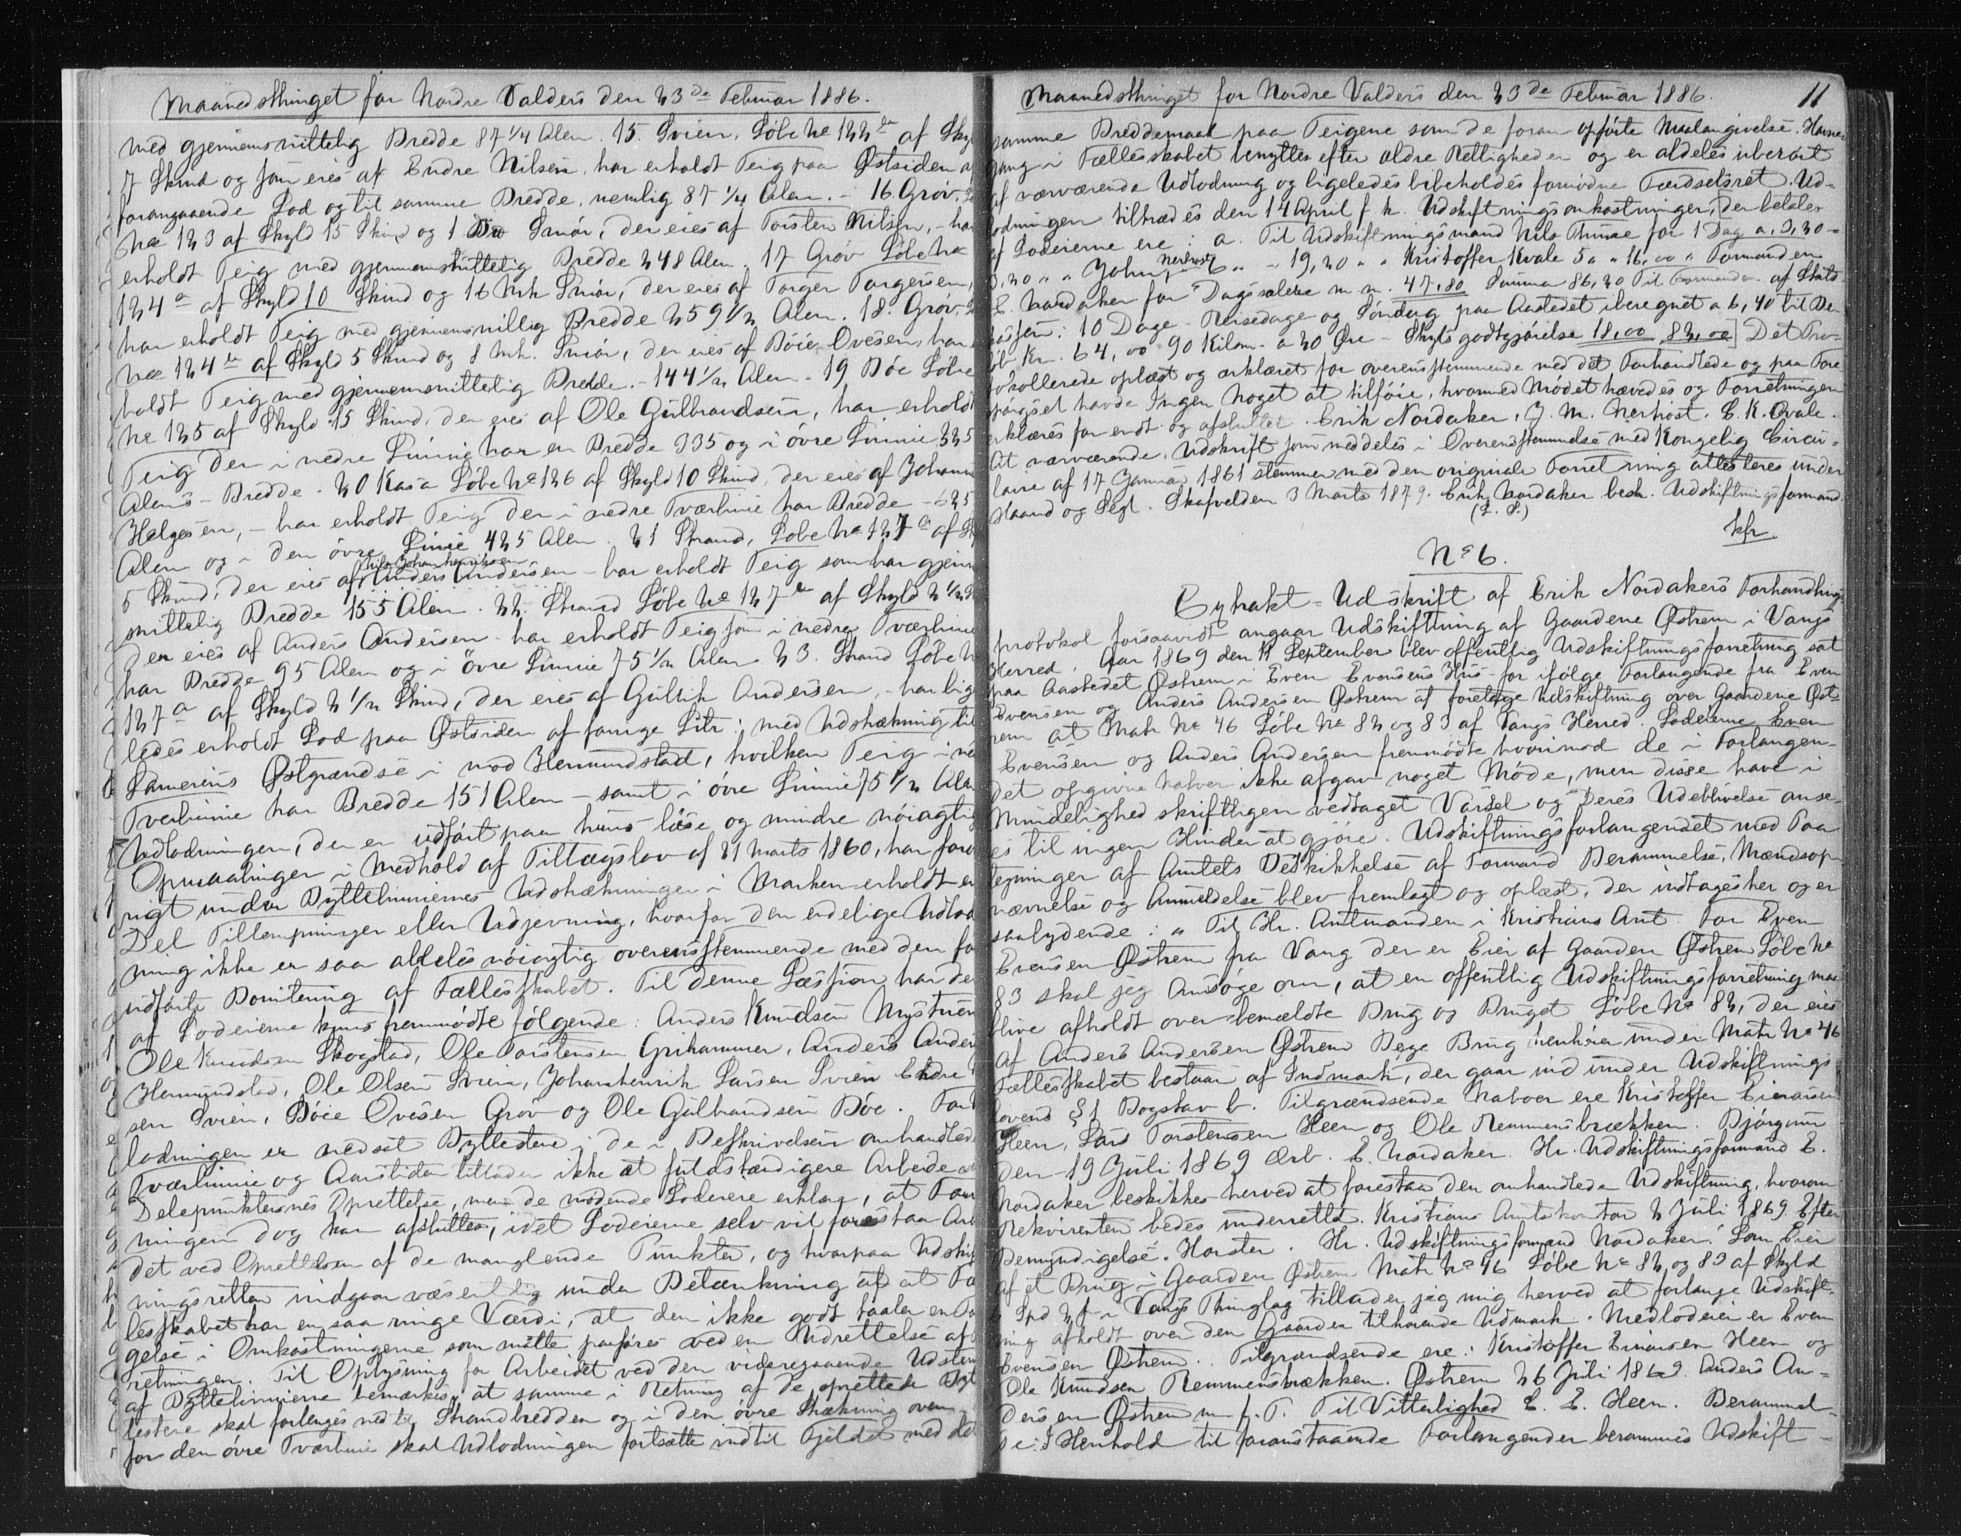 Maanedsthinget for Nordre Valders den 23de Februar 1886.
med gjennemsnittelig Bredde 87 1/4 Alen. 15. Svien, Løbe No 122 af Skyl
7 Skind og som eies af Endre Nilsen, har erholdt Teig paa Østsiden a
forangaaende Lod og til samme Bredde, nemlig 87 1/4 Alen. - 16 Grøv,
No 123 af Skyld 15 Skind og 1 Smør, der eies af Torsten Nilsen, - har
erholdt Teig med gjennemsnittelig Bredde 248 Alen. 17 Grøv Løbe No
124a af Skyld 10 Skind og 16 Mrk Smør, der eies af Torger Torgersen,
har erholdt Teig med gjennemsnittlig Bredde 259 1/2 Alen. 18. Grøv.
No 124 af Skyld 5 Skind og 8 Mrk. Smør, der eies af Bóie Ovesen, har
holdt Teig med gjennemsnittelig Bredde - 144 1/2 Alen - 19 Bóe Løbe
No 125 af Skyld 15 Skind, der eies af Ole Gulbrandsen, har erholdt
Teig der i nedre Linnie har en Bredde 335 og i óvre Linnie 325
Alens - Bredde. 20 Kasa Løbe No 126 af Skyld 10 Skind, der eies af Johannes
Helgesen, - har erholdt Teig der i nedre Tværlinie har Bredde - 625
Alen og i den óvre Linie 425 Alen. 21 Strand, Løbe No 127a af Sk
5 Skind, der eies af Nils Johanhenriksen Anders Andersen - har erholdt Teig som har gjenn
snittelig Bredde 155 Alen. 22. Strand Løbe No 127 af Skyld 2 1/2 S
der eies af Anders Andersen - har erholdt Teig som i nedre Tværlinie
har Bredde 95 Alen og i óvre Linnie 75 1/2 Alen 23. Strand Løbe N
127a af Skyld 2 1/2 Skind, der eies af Gullik Andersen, - har lig
ledes erholdt Lod paa Østsiden af forrige Litr; med Udstrækning til
Samerins Østgrændse i mod Hermundstad, hvilken Teig i ne
Tverlinnie har Bredde 151 Alen - samt i óvre Linnie 75 1/2 Alen
Udlodningen, der er udført paa hens lóse og mindre nóiagtig
Opmaalinger i Medhold af Tillægslov af 21 Marts 1860, har forø
rigt under Byttelinniernes Udstrækninger i Marken erholdt en
Del Tillempninger eller Udjevning, hvorfor den endelige Udlod
ning ikke er saa aldeles nóiagtig overensstemmende med den fo
udførte Bonitering af Fællesskabet. Til denne Sæssjon har de
af Lodeierne kuns fremmødte følgende: Anders Knudsen Mystuen
Ole Knudsen Skogstad, Ole Torstensen Grihammer, Anders Ander
Hermundstad, Ole Olsen Svien, Johanhenrik Larsen Svien Endre
sen Svien, Bóie Ovesen Gróv og Ole Gulbrandsen Bóe. For
lodningen er nedsat Byttestene i de i Beskrivelsen omhandlede
Tværlinnie og Aarstiden tillader ikke at fuldstændigere Arbeide
Delepunkternes Oprettelse, men de mødende Lodeiere erklær, at For
ningen dog kan afsluttes, idet Lodeierne selv vil forestaa Arb
det ved Oprettelsen af de manglende Punkter, og hvorpaa Udskif
ningsretten indgaar væsentlig under Betænkning af at Fæ
lesskabet har en saa ringe Værdi, at den ikke godt taaler en For
gelse i Omkostningerne som maatte paaføres ved en Udrettelse af
retningen. Til Oplysning for Arbeidet ved den videregaaende Udsten
af Byttelinnierne bemærkes, at samme i Retning af de oprettede Byt
testene skal forlenges ned til Strandbredden og i den óvre Strækning oven
for den óvre Tværlinie skal Udlodningen fortsætte indtil Fjeldet med de
Maanedsthinget for Nordre Valders den 23de Februar 1886.
11
samme Breddemaal paa Teigene som de foran opførte Maalangivelse. Havne
gang i Fællesskabet benyttes efter ældre Rettigheder og er aldeles uberørt
af nærværende Udlodning og ligeledes bibeholdes fornødne Færdselsret. Ud-
lodningen tiltrædes den 14 April f. k. Udskiftningsomkostninger, der betales
af Lodeierne ere: a. Til Udskiftningsmand Nils Thune for 1 Dag a, 3,20 -
3,20 " " John Nerhøst 6 " - 19,20 " " Kristoffer Kvale 5 a " 16,00 " Formanden
E. Nordaker for Dagsedlene m. m. 47,80 Summa 86,20 Til Formanden af Stats
kassen: 10 Dage - Reisedage og Søndag paa Aastedet iberegnet a 6,40 til Be-
løb Kr. 64,00 90 Kilom. a 20 Øre - Skydsgodtgjórelse 18,00 82,00 Det Pro-
tokollerede oplæst og erklæret for overensstemmende med det Forhandlede og paa Fore
spørgsel havde Ingen Noget at tilføie, hvormed Mødet hævedes og Forretningen
erklæres for endt og afsluttet. Erik Nordaker. J. M. Nerhøst. E. K. Qvale.
At nærværende, Udskrift som meddeles i Overensstemmelse med Kongelig Circu-
laire af 17 Januar 1861 stemmer med den originale Forretning attesteres under
Haand og Segl. Skafvelden 3 Marts 1879. Erik Nordaker besk. Udskiftningsformand
(L. S.)
No 6.
Extrakt-Udskrift af Erik Nordakers Forhandlings
protokol forsaavidt angaar Udskiftning af Gaardene Østrem i Vangs
Herred. Aar 1869 den 11 September blev offentlig Udskiftningsforretning sat
paa Aastedet Østrem i Even Evensens Hus for ifølge Forlangende fra Even
Evensen og Anders Andersen Østrem at foretage Udskiftning over Gaardene Øst-
rem at Matr No 46 Løbe No 82 og 83 af Vangs Herred. Lodeierne Even
Evensen og Anders Andersen fremmødte hvorimod de i Forlangen-
det opgivne Naboer ikke afgav noget Møde, men disse have i
Mindelighed skriftligen vedtaget Varsel og Deres Udeblivelse anse-
es til ingen Hinder at gjöre. Udskiftningsforlangendet med Paa
tegninger af Amtets Beskikkelse af Formand Berammelse, Mændsop
nævnelse og Anmeldelse blev fremlagt og oplæst, der indtages her og er
saalydende: " Til Hr. Amtmanden i Kristians Amt For Even
Evensen Østrem fra Vang der er Eier af Gaarden Østrem Løbe No
83 skal jeg Ansøge om, at en offentlig Udskiftningsforretning maa
blive afholdt over bemældte Brug og Bruget Løbe No 82, der eies
af Anders Andersen Østrem Bege Brug henhøre under Matr No 46
Fællesskabet bestaar af Indmark, der gaar ind under Udskiftnings
lovens § 1 Bogstav b. Tilgrændsende Naboer ere Kristoffer Einarsen
Heen, Lars Torstensen Heen og Ole Remmensbrækken. Bjørgum
den 19 Juli 1869 Ærb. E. Nordaker. Hr. Udskiftningsformand E.
Nordaker beskikkes herved at forestaa den omhandlede Udskiftning, hvorom
Rekvirenten bedes underrettet. Kristians Amtskontor 2 Juli 1869. Efter
Bemyndigelse. Horster. Hr. Udskiftningsformand Nordaker! Som Eier
af et Brug i Gaarden Østrem Matr No 46 Løbe No 82 og 83 af Skyld
Spd i Vangs Thinglag tillader jeg mig herved at forlange Udskift-
ning afholdt over den Gaarden tilhørende Udmark. Medlodeier er Even
Evensen Østrem. Tilgrændsende ere: Kristoffer Einarsen Heen og
Ole Knudsen Remmensbrækken. Østrem 26 Juli 1869. Anders An-
dersen Østrem m. f. P. Til Vitterlighed E. E. Heen. Berammel-
se: I Henhold til foranstaaende Forlangender berammes Udskift-